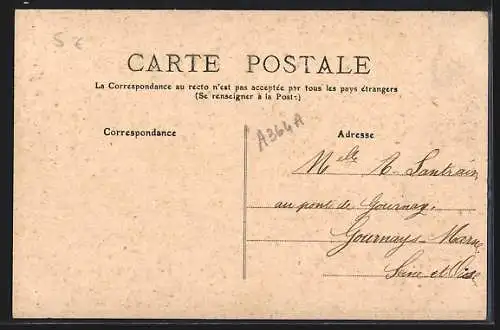 5 €
CARTE POSTALE
La Correspondance au recto n'est pas acceptée par tous les pays étrangers
(Se renseigner à la Poste)
Correspondance
A364A
Adresse
Melle
au pont de Gournay,
Gournays-Marne
Seine et Oise